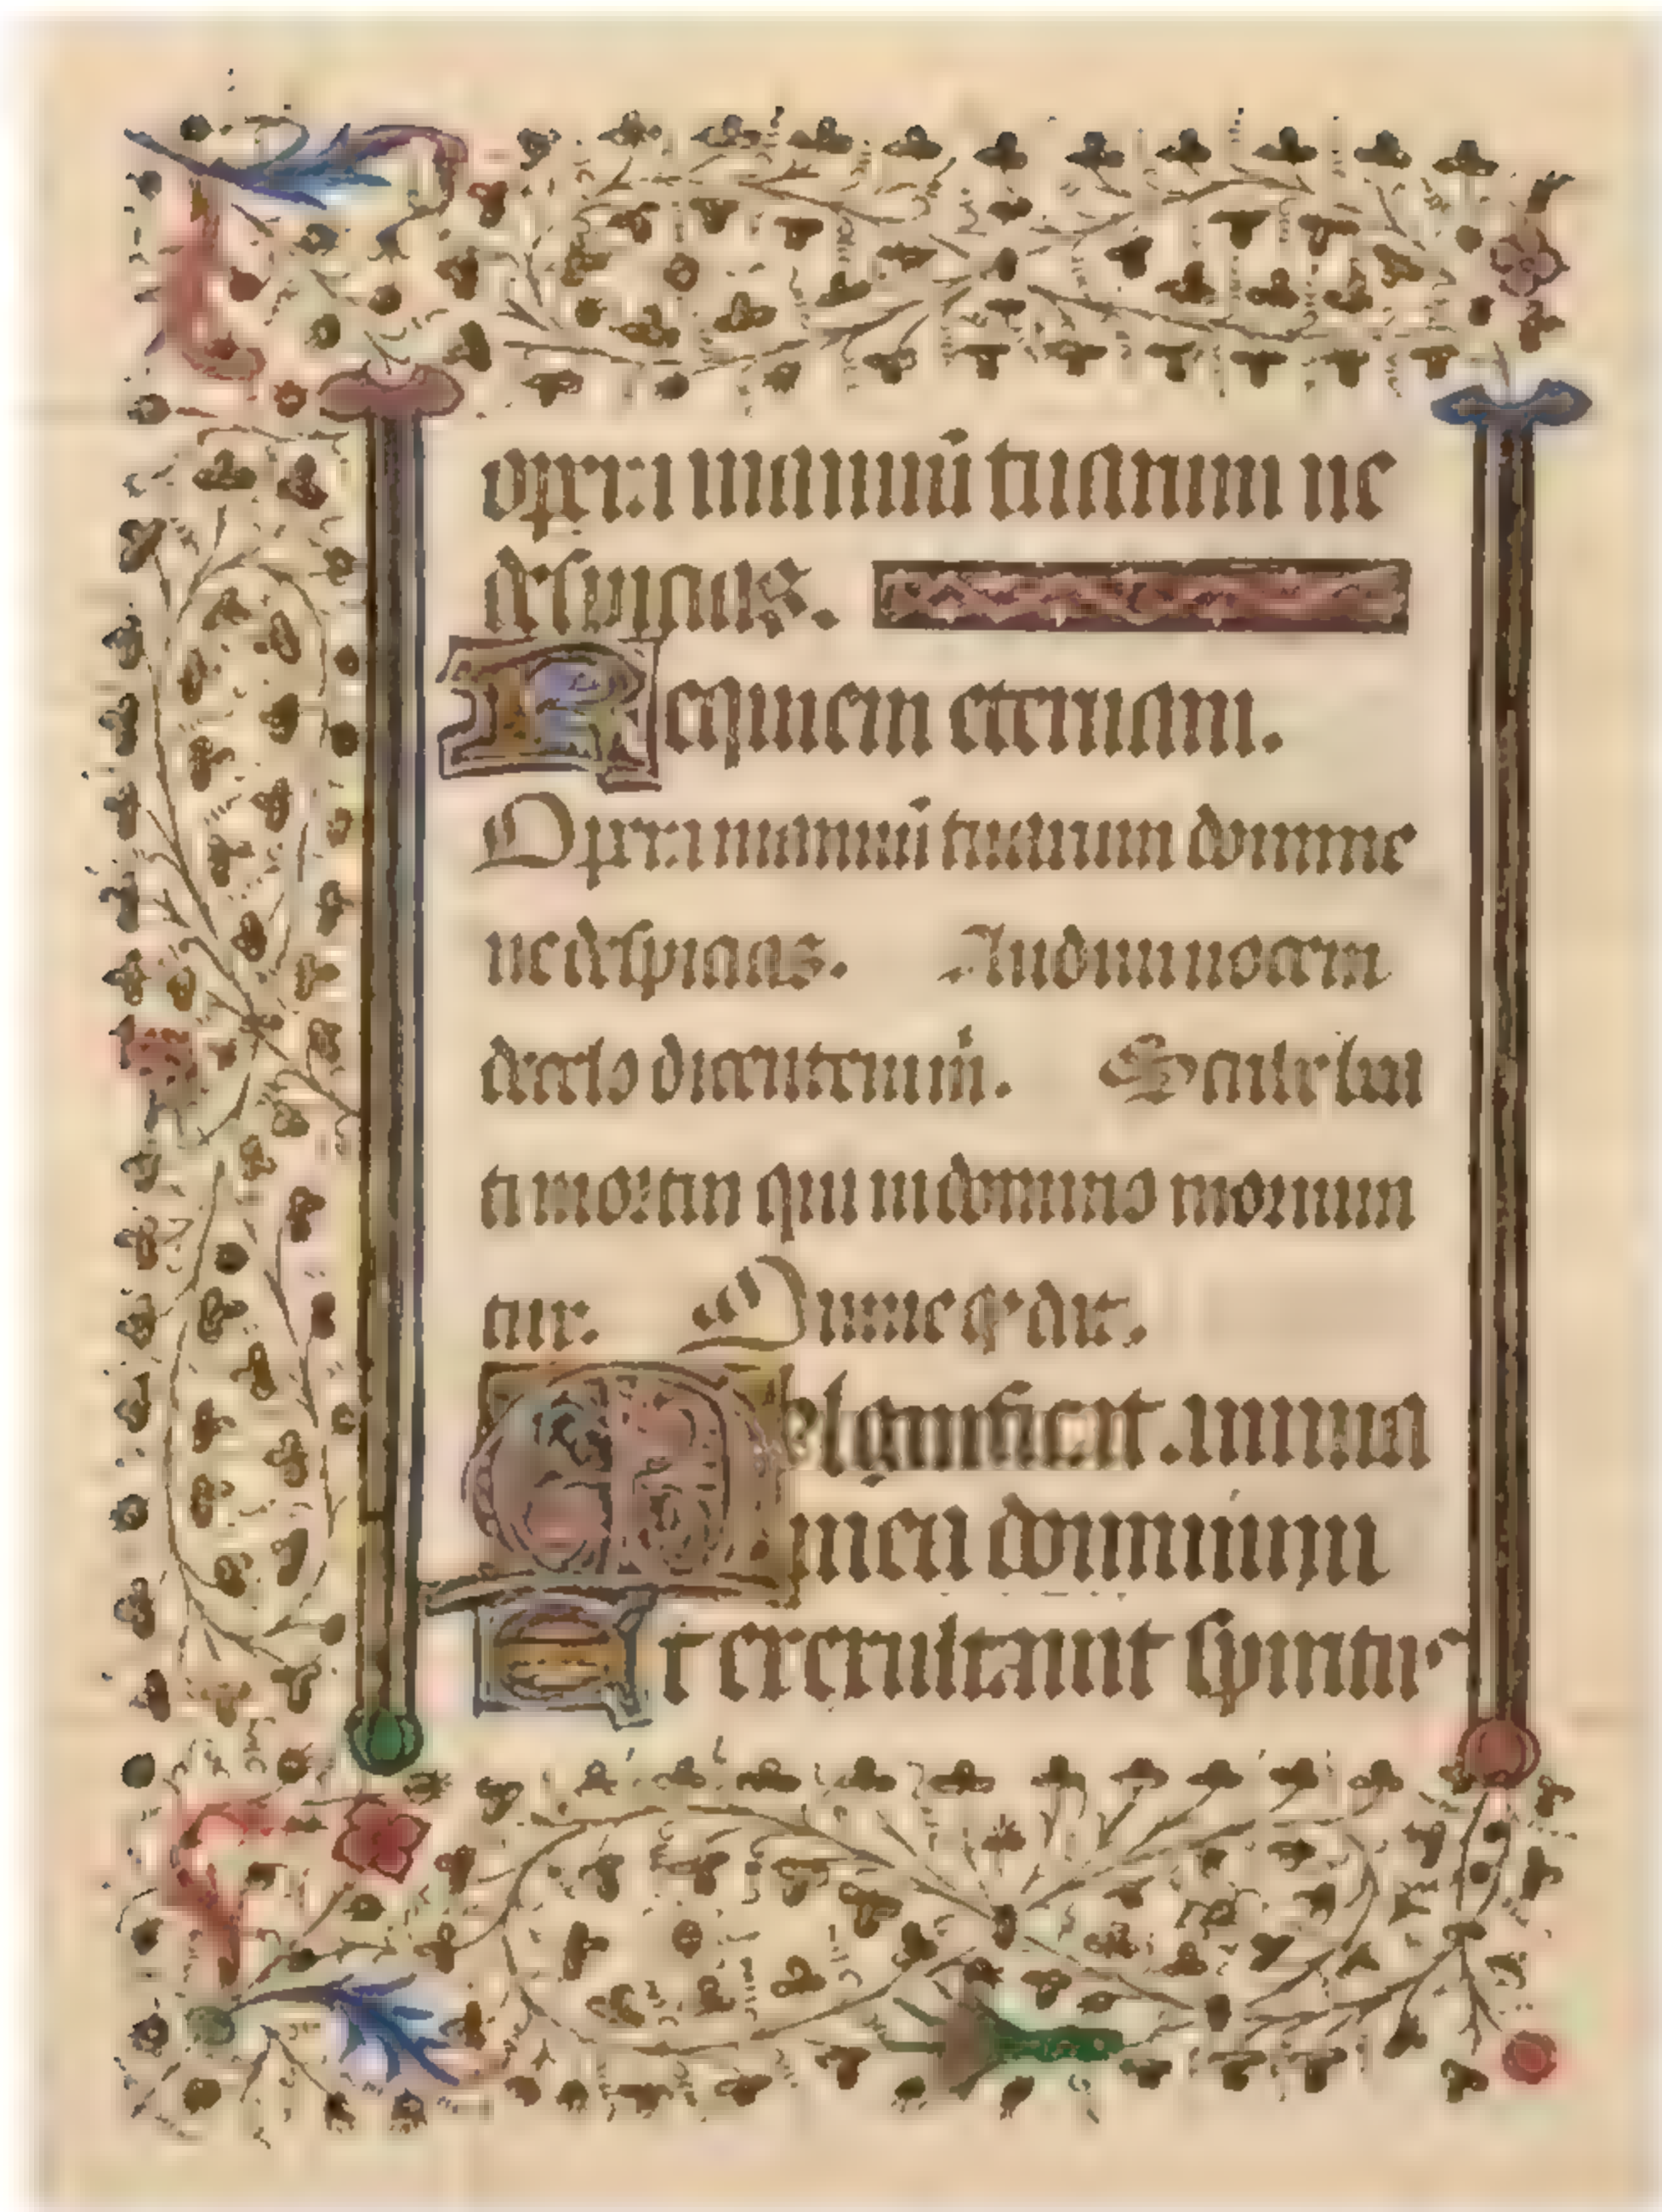 opera manuũ tuarum ne
despicias.
Requiem eternam.
Opera manuũ tuarum domine
ne despicias. Audiui uocem
de celo dicentem m̃. Scribe bea
ti mortui qui in domino moriun
tur.
Magnificat. anima
mea dominum
Et exultauit spiritus